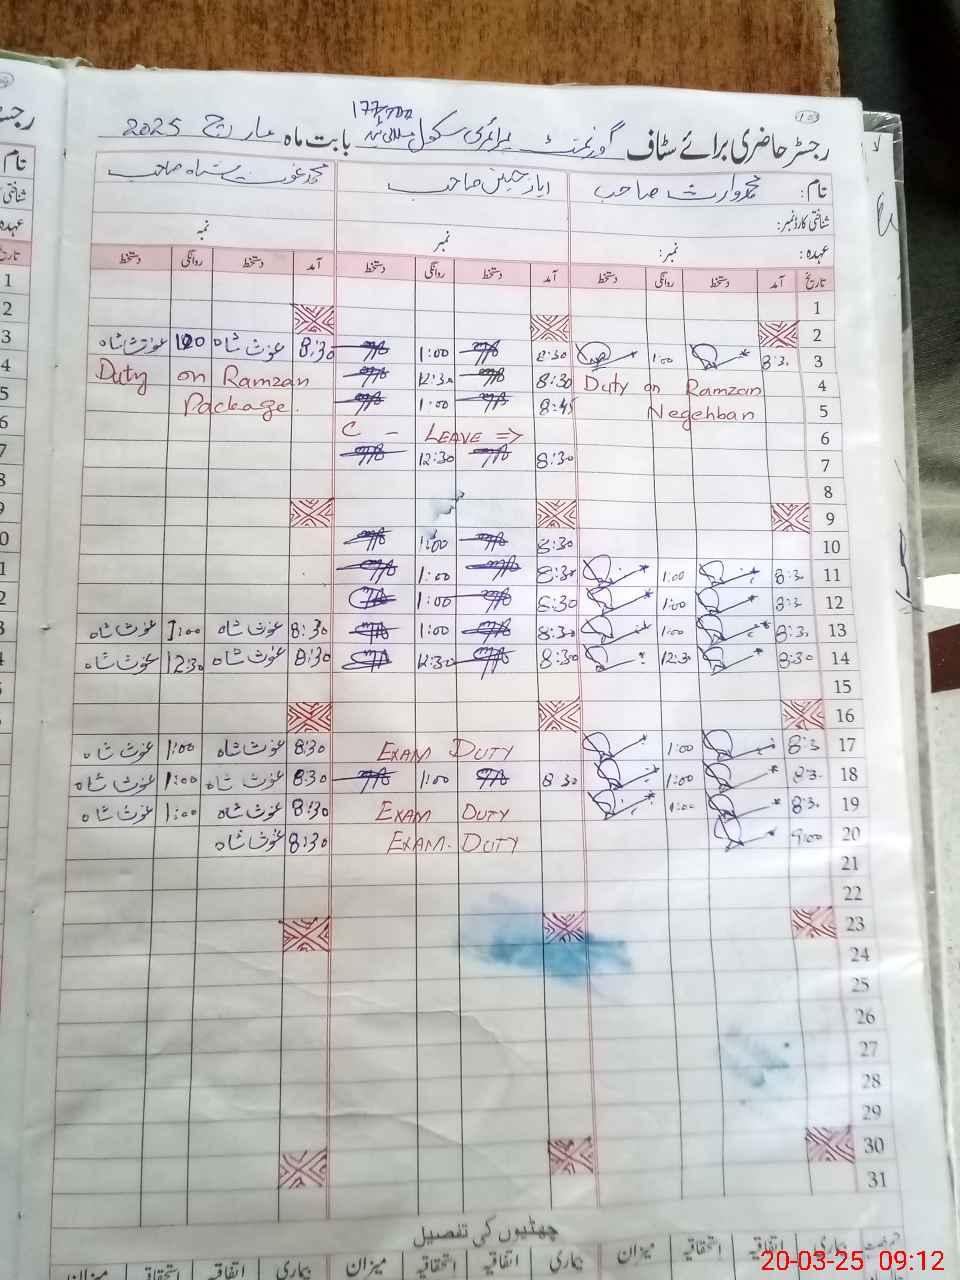 177/100
رجسٹر حاضری برائے سٹاف گورنمنٹ پرائمری سکول بابت ماہ مارچ 2025
نام: محمد وارث صاحب ایاز حسین صاحب محمد غوث شاہ صاحب
شناختی کارڈ نمبر:
عہدہ: نمبر: نمبر نمبر
تاریخ آمد دستخط روانگی دستخط آمد دستخط روانگی دستخط آمد دستخط روانگی دستخط
1
2
3 8:3. 1:00 8:30 1:00 8:30 غوث شاہ 1:00 غوث شاہ
4 Duty on Ramzan 8:30 12:30 Duty on Ramzan
5 Negehban 8:45 1:00 Package.
6 C - LEAVE =>
7 8:30 12:30
8
9
10 8:30 1:00
11 8:3. 1:00 8:30 1:00
12 8:3. 1:00 8:30 1:00
13 8:3. 1:00 8:30 1:00 8:30 غوث شاہ 1:00 غوث شاہ
14 8:30 12:30 8:30 12:30 8:30 غوث شاہ 12:30 غوث شاہ
15
16
17 8:3. 1:00 EXAM DUTY 8:30 غوث شاہ 1:00 غوث شاہ
18 8:3. 1:00 8:30 1:00 8:30 غوث شاہ 1:00 غوث شاہ
19 8:3. 1:00 EXAM DUTY 8:30 غوث شاہ 1:00 غوث شاہ
20 9:00 EXAM. DUTY 8:30 غوث شاہ
21
22
23
24
25
26
27
28
29
30
31
چھٹیوں کی تفصیل
بیماری اتفاقیہ استحقاقیہ میزان بیماری اتفاقیہ استحقاقیہ میزان بیماری اتفاقیہ استحقاقیہ میزان
20-03-25 09:12